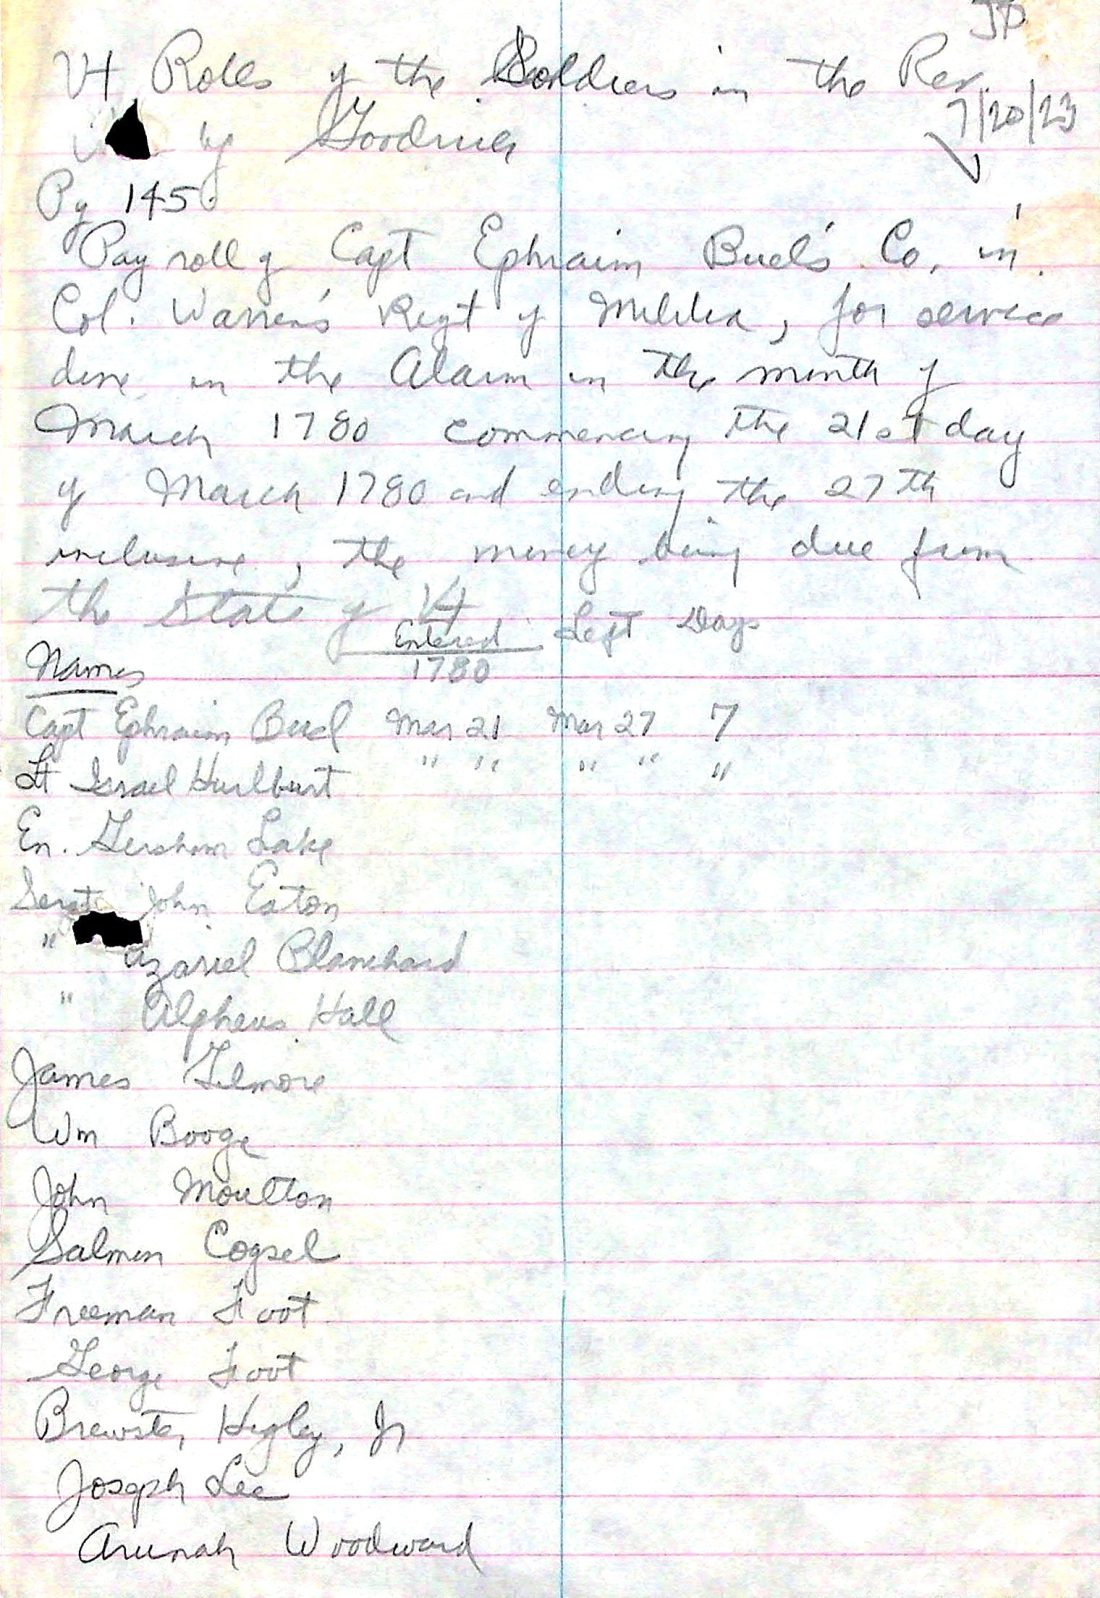 JP
Vt Rolls of the Soldiers in the Rev.
7/20/23
by Goodrich
Pg 145
Pay roll of Capt Ephraim Buel's Co. in
Col. Warren's Regt of Militia, for service
done in the Alarm in the month of
March 1780 commencing the 21st day
of March 1780 and ending the 27th
inclusive, the money being due from
the State of Vt
Entered Left Days
Names 1780
Capt Ephraim Buel Mar 21 Mar 27 7
Lt Israel Hurlburt " " " " "
En. Gershom Lake
Sergt John Eaton
" Azariel Blanchard
" Alpheus Hall
James Gilmore
Wm Booge
John Moulton
Salmon Cogsel
Freeman Foot
George Foot
Brewster Higley, Jr
Joseph Lee
Arunah Woodward